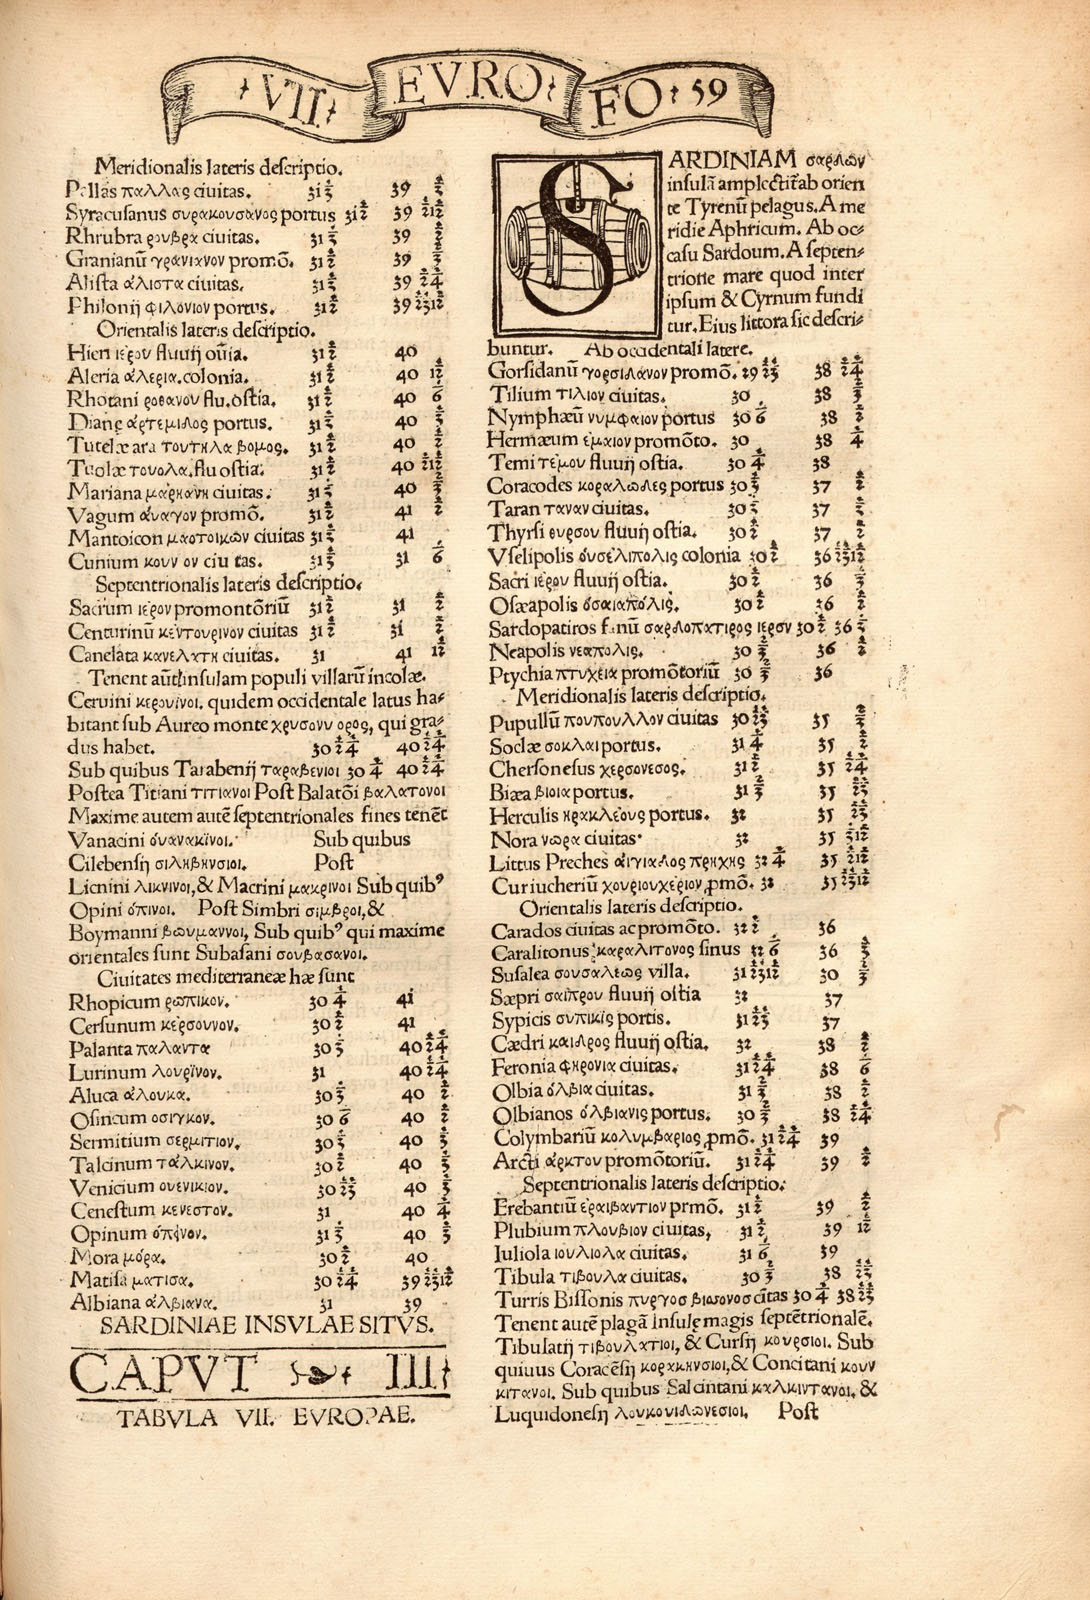 VII EVRO FO 59
Meridionalis lateris descriptio.
Pallas παλλας ciuitas. 31 39
Syracusanus συρακουσανος portus 31 39
Rhrubra ρουβρα ciuitas. 31 39
Granianũ γρανιανον promõ. 31 39
Alista ἀλιστα ciuitas. 31 39
Philonij φιλονιου portus. 31 39
Orientalis lateris descriptio.
Hieri ιερου fluuij 31 40
Aleria ἀλερια. colonia. 31 40
Rhotani ροθανου flu. ostia. 31 40
Dianę ἀρτεμιδος portus. 31 40
Tutelæ ara τουτηλα βομος. 31 40
Tuolæ τουολα. flu ostia. 31 40
Mariana μαριανη ciuitas. 31 40
Vagum ἀυαγον promõ. 31 41
Mantoicon μαοτοικων ciuitas 31 41
Cunium 31 31
Septentrionalis lateris descriptio.
Sacrum ιερον promontõriũ 31 31
Centurinũ κεντουρινον ciuitas 31 31
Canelata κανελατη ciuitas. 31 41
Tenent aũt insulam populi villarũ incolæ.
Ceruini κερουινοι. quidem occidentale latus ha⸗
bitant sub Aureo monte χρυσουν ορος, qui gra⸗
dus habet. 30 40
Sub quibus Tarabenij ταραβενιοι 30 40
Postea Titiani τιτιανοι Post Balatõi βαλατονοι
Maxime autem autẽ septentrionales fines tenẽt
Vanacini ὀυανακῖνοι. Sub quibus
Cilebensij σιληβηνσιοι. Post
Licnini λικνινοι, & Macrini μακρινοι Sub quibꝰ
Opini ὀπινοι. Post Simbri σιμβροι, &
Boymanni βωυμαννοι, Sub quibꝰ qui maxime
orientales sunt Subasani σουβασανοι.
Ciuitates mediterraneæ hæ sunt
Rhopicum ρωπικον. 30 41
Cersunum κερσουνον. 30 41
Palanta παλαντα 30 40
Lurinum λουρῖνον. 31 40
Aluca ἀλουκα. 30 40
Osincum οσιγκον. 30 40
Sermitium σερμιτιον. 30 40
Talcinum ταλκινον. 30 40
Venicium ουενικιον. 30 40
Cenestum κενεστον. 31 40
Opinum ὀπῖνον. 31 40
Mora μόρα. 30 40
Matisa ματισα. 30 39
Albiana ἀλβιανα. 31 39
SARDINIAE INSVLAE SITVS.
CAPVT III
TABVLA VII. EVROPAE.
SARDINIAM σαρδων
insulã amplectit̃ ab orien
te Tyrenũ pelagus. A me
ridie Aphricum. Ab oc⸗
casu Sardoum. A septen⸗
trione mare quod inter
ipsum & Cyrnum fundi
tur. Eius littora sic descri⸗
buntur. Ab occidentali latere.
Gorsidanũ γορσιδανον promõ. 29 38
Tilium τιλιον ciuitas. 30 38
Nymphæũ νυμφαιον portus 30 38
Hermæum ἑμαιον promõto. 30 38
Temi τέμου fluuij ostia. 30 38
Coracodes κοραλωδες portus 30 37
Taran ταναν ciuitas. 30 37
Thyrsi θυρσου fluuij ostia. 30 37
Vselipolis ὀυσέλιπολις colonia 30 36
Sacri ιέρου fluuij ostia. 30 36
Osæapolis ὀσαιαπόλις. 30 36
Sardopatiros fanũ σαρδοπατιρος ιερον 30 36
Neapolis νεαπολις. 30 36
Ptychia πτυχεια promõtoriũ 30 36
Meridionalis lateris descriptio.
Pupullũ πουπουλλον ciuitas 30 35
Soclæ σοκλαι portus. 31 35
Chersonesus χερσονεσος. 31 35
Biæa βιοια portus. 31 35
Herculis ηρακλέους portus. 32 35
Nora νωρα ciuitas 32 35
Littus Preches ἀιγιαλος πρηχης 32 35
Curiucheriũ χουριουχεριον ꝓmõ. 32 35
Orientalis lateris descriptio.
Carados ciuitas ac promõto. 32 36
Caralitonus καραλιτονος sinus 32 36
Susalea σουσαλεως villa. 31 30
Sæpri σαιπρου fluuij ostia 32 37
Sypicis συπικις portis. 31 37
Cædri καιδρος fluuij ostia. 32 38
Feronia φηρονια ciuitas. 31 38
Olbia ὀλβια ciuitas. 31 38
Olbianos ὀλβιανις portus. 30 38
Colymbariũ κολυμβαριος ꝓmõ. 31 39
Arcti ἀρκτου promõtoriũ. 31 39
Septentrionalis lateris descriptio:
Erebantiũ ἐραιβαντιον prmõ. 31 39
Plubium πλουβιον ciuitas, 31 39
Iuliola ιουλιολα ciuitas. 31 39
Tibula τιβουλα ciuitas. 30 38
Turris Bissonis πυργοσ βισωνοσ cĩtas 30 38
Tenent autẽ plagã insulę magis septẽtrionalẽ.
Tibulatij τιβουλατιοι, & Cursij κουρσιοι. Sub
quiuus Coracẽsij κορακηνσιοι, & Concitani κουν
κιτανοι. Sub quibus Salcintani καλκιντανοι, &
Luquidonesij λουκουιδωνεσιοι. Post